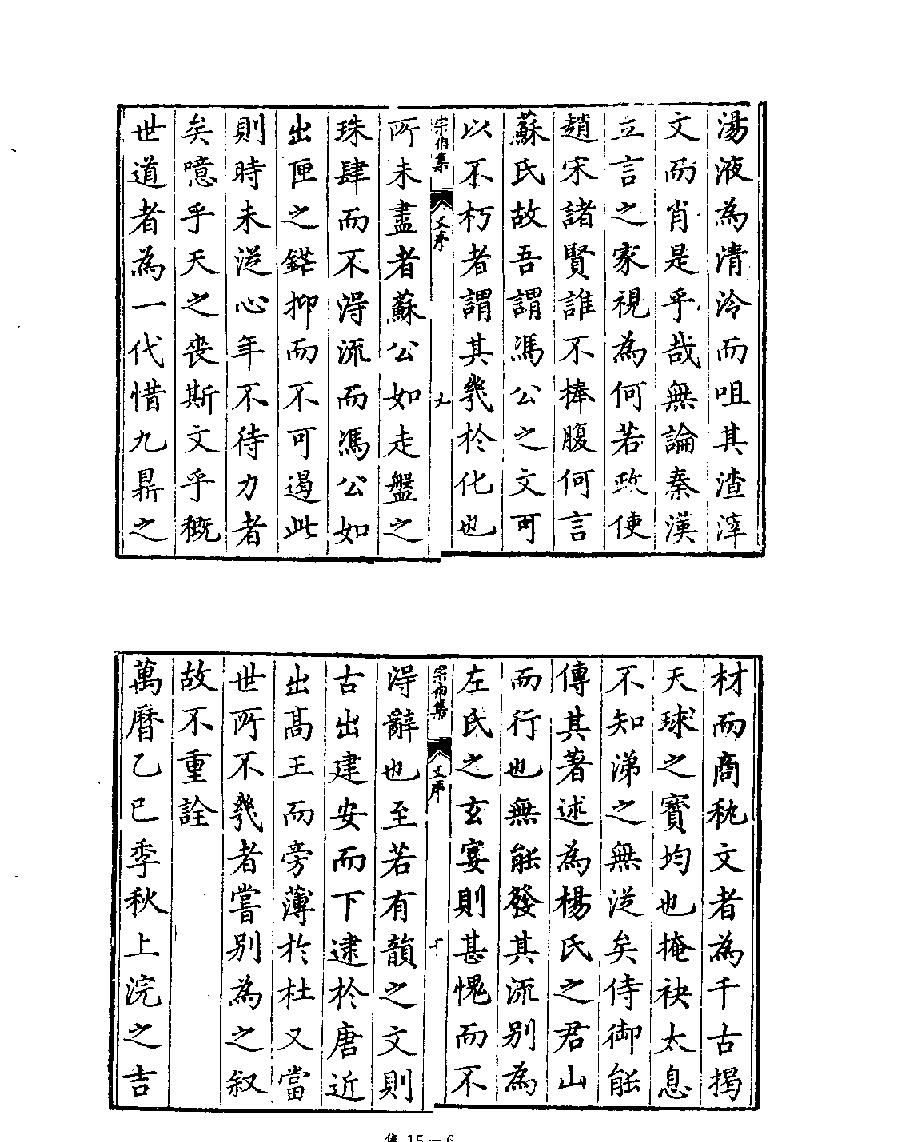 湯液為清泠而咀其渣滓
文而肖是乎哉無論秦漢
立言之家視為何若政使
趙宋諸賢誰不捧腹何言
蘇氏故吾謂馮公之文可
以不朽者謂其幾於化也
宗伯集
文序
九
所未盡者蘇公如走盤之
珠肆而不淂流而馮公如
出匣之鋩抑而不可遏此
則時未從心年不待力者
矣噫乎天之喪斯文乎概
世道者為一代惜九鼎之
材而商秇文者為千古揭
天球之寶均也掩袂太息
不知涕之無從矣侍御能
傳其著述為楊氏之君山
而行也無能發其流別為
左氏之玄宴則甚愧而不
宗伯集
文序
十
淂辭也至若有韻之文則
古出建安而下逮於唐近
出高王而旁薄於杜又當
世所不幾者嘗別為之叙
故不重詮
萬曆乙巳季秋上浣之吉
集 15－6